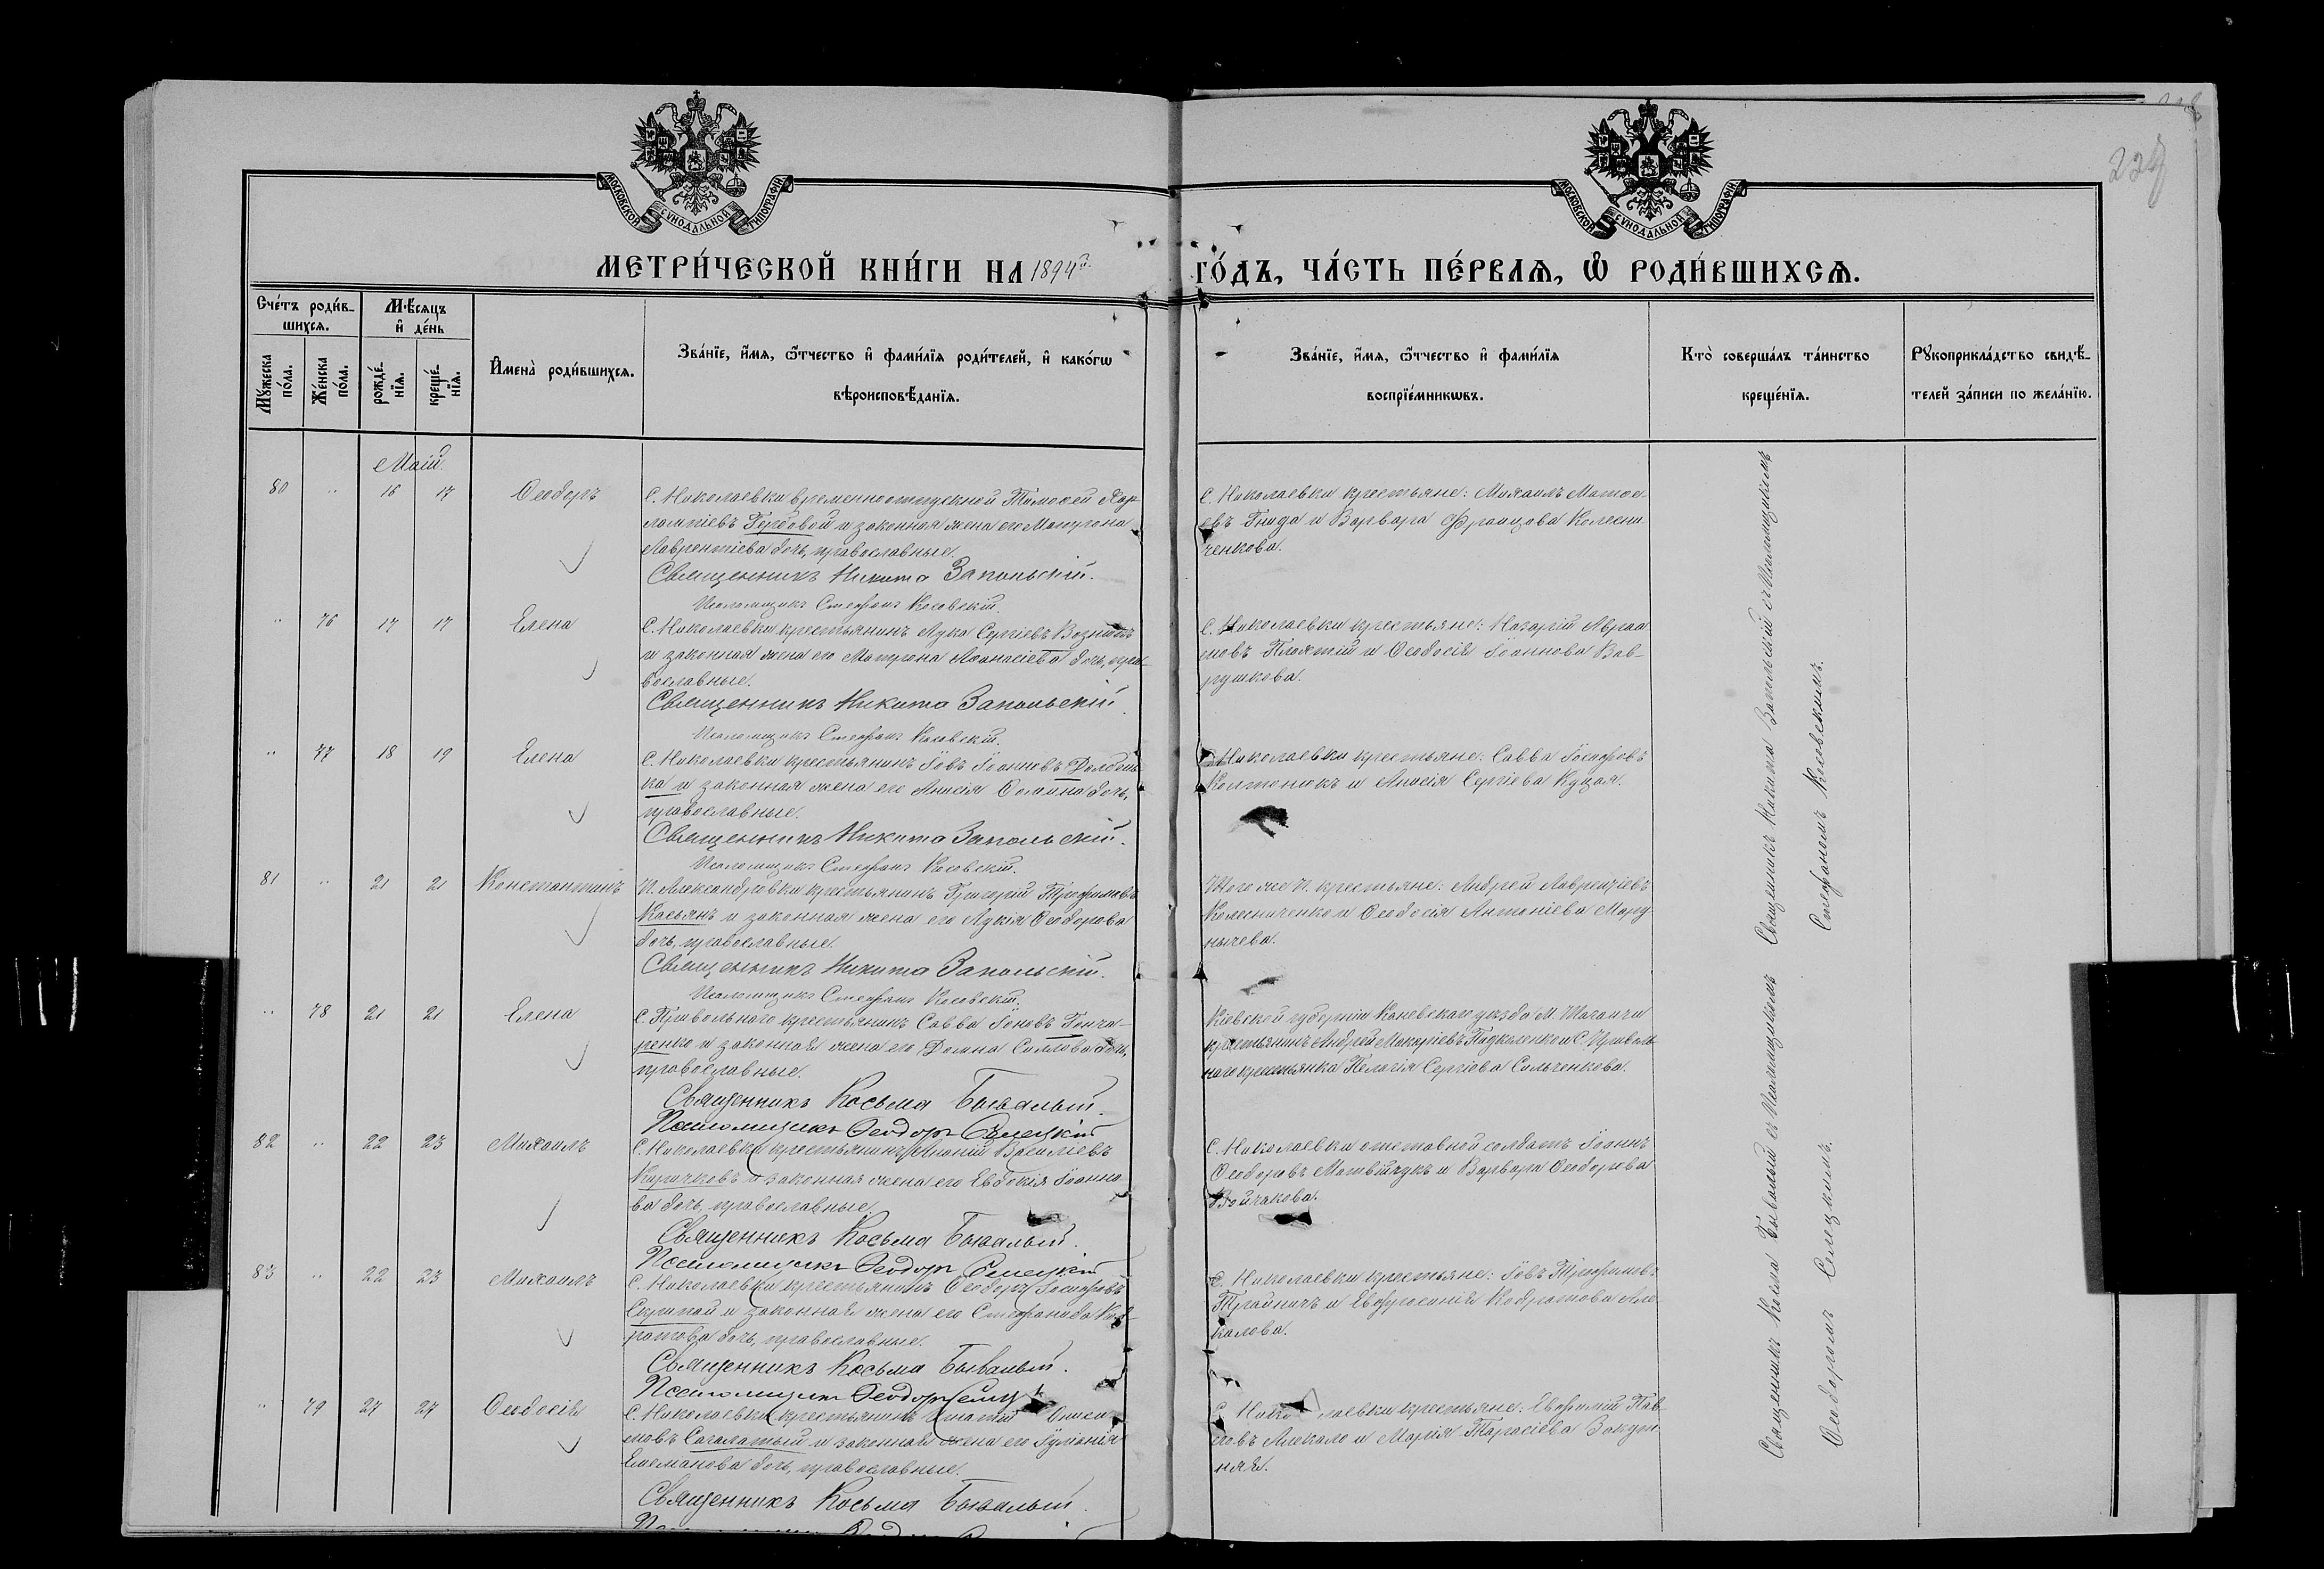 МОСКОВСКОЙ СѴНОДАЛЬНОЙ ТИПОГРАФІИ
МОСКОВСКОЙ СѴНОДАЛЬНОЙ ТИПОГРАФІИ
МЕТРИ́ЧЕСКОЙ КНИ́ГИ НА 1894й ГО́ДЪ, ЧА́СТЬ ПЕ́РВАѦ, Ѽ РОДИ́ВШИХСѦ.
Сче́тъ роди́в-
шихсѧ.
Мꙋ́жеска
по́ла.
Же́нска
по́ла.
Мѣ́сѧцъ
и҆ де́нь
рожде́-
нїѧ.
креще́-
нїѧ.
И҆мена̀ роди́вшихсѧ.
Зва́нїе, и҆́мѧ, ѻ҆́тчество и҆ фами́лїѧ роди́телей, и҆ како́гѡ
вѣроисповѣ́данїѧ.
Зва́нїе, и҆́мѧ, ѻ҆́тчество и҆ фами́лїѧ
воспрїе́мникѡвъ.
Кто̀ соверша́лъ та́инство
креще́нїѧ.
Рꙋкоприкла́дство свидѣ́-
телей за́писи по жела́нїю.
Маій
80 " 16 17 Ѳеодоръ
С. Николаевки временноотпускной Тимоѳей Хар-
лампіевъ Гербовой и законная жена его Матрона
Лаврентіева дочь, православные.
Священникъ Никита Запольскій.
Псаломщикъ Стефанъ Косовскій.
С. Николаевки крестьяне: Михаилъ Матѳе-
евъ Гнида и Варвара Францова Колесни-
ченкова.
" 76 17 17 Елена
С. Николаевки крестьянинъ Лука Сергіевъ Вознюкъ
и законная жена его Матрона Аѳанасіева дочь, пра-
вославные.
Священникъ Никита Запольскій.
Псаломщикъ Стефанъ Косовскій.
С. Николаевки крестьяне: Назарій Авраа-
мовъ Плахтій и Ѳеодосія Іоаннова Вав-
рушкова.
" 77 18 19 Елена
С. Николаевки крестьянинъ Іовъ Іоанновъ
ка и законная жена его Анисія Ѳомина дочь,
православные.
Священникъ Никита Запольскій.
Псаломщикъ Стефанъ Косовскій.
С. Николаевки крестьяне: Савва Іосифовъ
Колтонюкъ и Анисія Сергіева Куцая.
81 " 21 21 Константинъ
П. Александровки крестьянинъ Григорій Трофимовъ
Касьянъ и законная жена его Лукія Ѳеодорова
дочь, православные.
Священникъ Никита Запольскій.
Псаломщикъ Стефанъ Косовскій.
Того же П. крестьяне: Андрей Лаврентіевъ
Колесниченко и Ѳеодосія Антоніева Мару-
нычева.
" 78 21 21 Елена
С. Привольнаго крестьянинъ Савва Іоновъ Гонча-
ренко и законная жена его Домна Силова дочь,
православные.
Священникъ Косьма Бывалый.
Псаломщикъ Ѳеодоръ Селецкій
Кіевской губерніи Каневскаго уѣзда М.
крестьянинъ Андрей Макаріевъ и С. Приволь-
наго крестьянка Пелагія Сергіева Сильченкова.
82 " 22 23 Михаилъ
С. Николаевки крестьянинъ Василіевъ
Киричковъ и законная жена его Евдокія Іоанно-
ва дочь, православные.
Священникъ Косьма Бывалый.
Псаломщикъ Ѳеодоръ Селецкій
С. Николаевки отставной солдатъ Іоаннъ
Ѳеодоровъ Матвійчукъ и Варвара Ѳеодорова
83 " 22 23 Михаилъ
С. Николаевки крестьянинъ Ѳеодоръ Іосифовъ
Скрипай и законная жена его Стефанида Код-
ратова дочь, православные.
Священникъ Косьма Бывалый.
Псаломщикъ Ѳеодоръ
С. Николаевки крестьяне: Іовъ Трофимовъ
и Евфросинія Кодратова Але-
калова.
" 79 27 27 Ѳеодосія
С. Николаевки крестьянинъ Игнатій Ониси-
мовъ Сагалатый и законная жена его Іуліанія
дочь, православные.
Священникъ Косьма Бывалый.
С. Николаевки крестьяне: Евфимій Пав-
ловъ Алекало и Марія Тарасіева Закут-
няя.
Священникъ Никита Запольскій съ Псаломщикомъ
Стефаномъ Косовскимъ.
Священникъ Косьма Бывалый съ Псаломщикомъ
Ѳеодоромъ Селецкимъ.